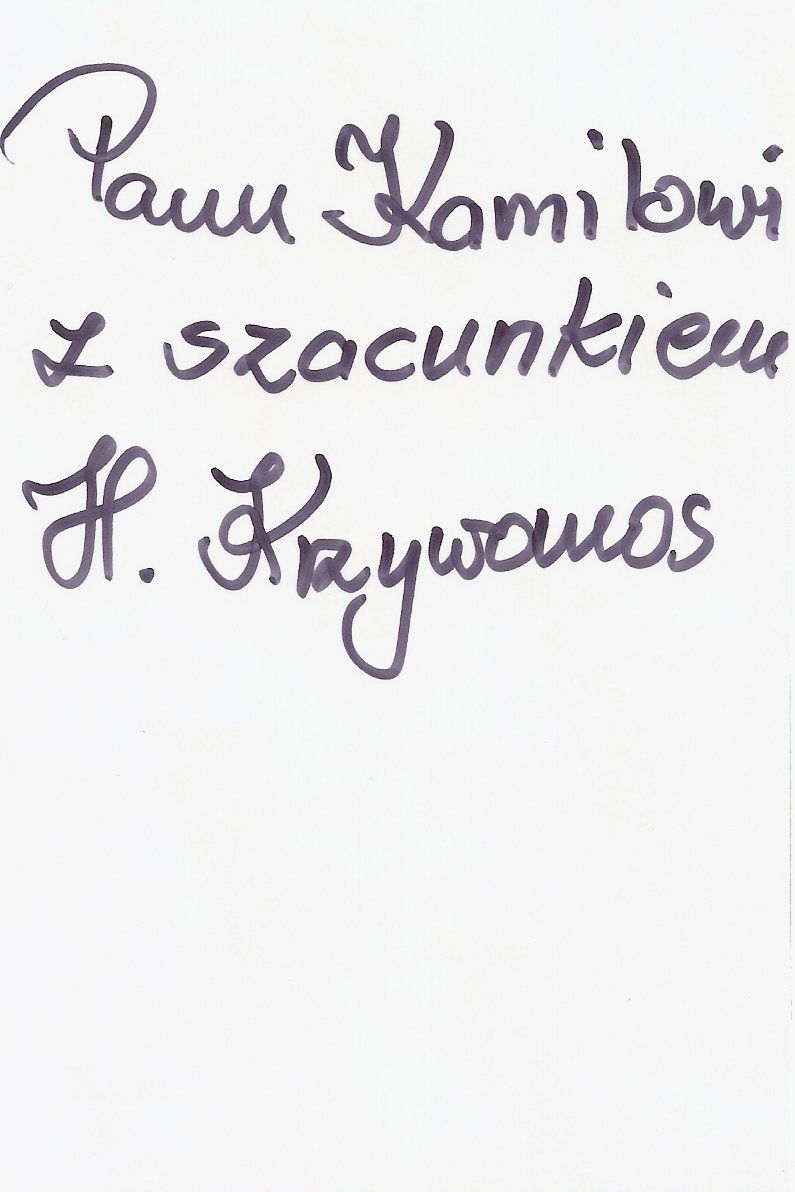 Panu Kamilowi
z szacunkiem
H. Krzywonos